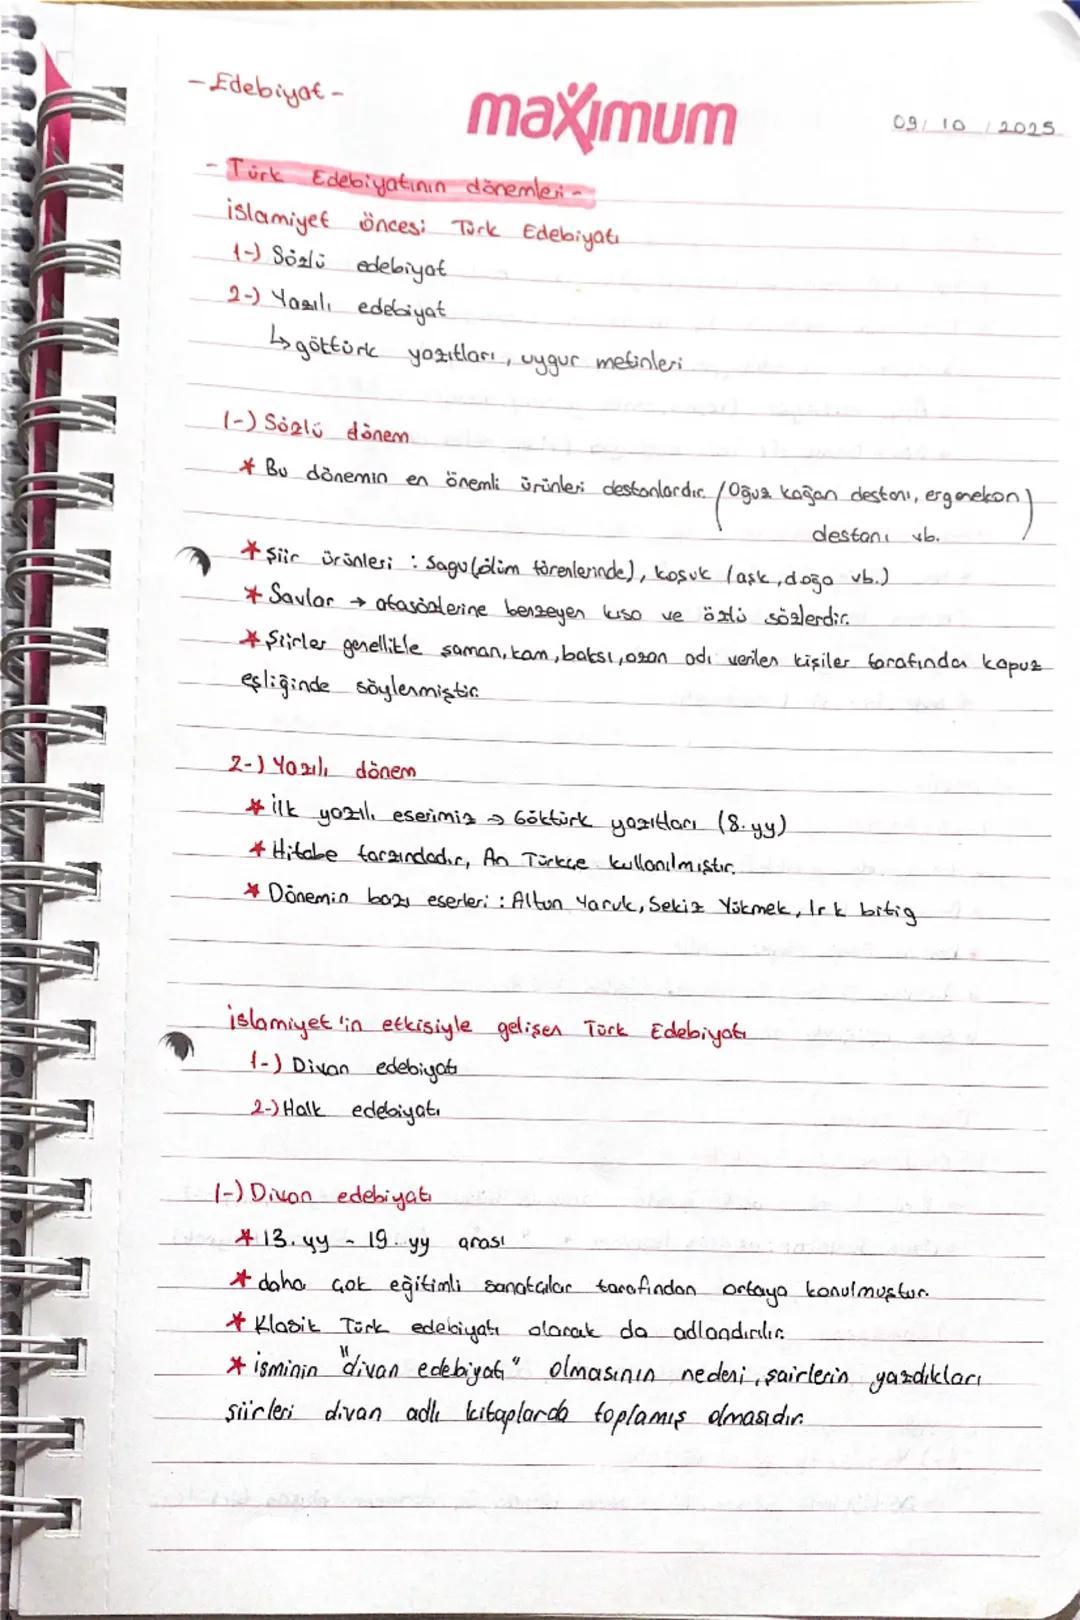 - Edebiyat -
maximum
09/10/2025
- Türk Edebiyatının dönemleri -
islamiyet öncesi Türk Edebiyatı
1-) Sözlü edebiyat
2-) Yazılı edebiyat
↳ göttürk yazıtları, uygur metinleri
1-) Sözlü dönem
* Bu dönemin en önemli ürünleri destanlardır. (Oğuz kağan destanı, ergenekon
destanı vb.)
* Şiir ürünleri : Sagu (ölüm törenlerinde), koşuk (aşk, doğa vb.)
* Savlar → atasözlerine benzeyen kısa ve özlü sözlerdir.
* Şiirler genellikle şaman, kam, baksı, ozan adı verilen kişiler tarafından kopuz
eşliğinde söylenmiştir.
2-) Yazılı dönem
* ilk yazılı eserimiz → Göktürk yazıtları (8. yy)
* Hitabe tarzındadır, Arı Türkçe kullanılmıştır.
* Dönemin bazı eserleri : Altun Yaruk, Sekiz Yükmek, Irk bitig
islamiyet'in etkisiyle gelişen Türk Edebiyatı
1-) Divan edebiyatı
2-) Halk edebiyatı
1-) Divan edebiyatı
* 13. yy - 19. yy arası
* daha çok eğitimli sanatçılar tarafından ortaya konulmuştur.
* Klasik Türk edebiyatı olarak da adlandırılır.
* isminin "divan edebiyatı" olmasının nedeni, şairlerin yazdıkları
şiirleri divan adlı kitaplarda toplamış olmasıdır.